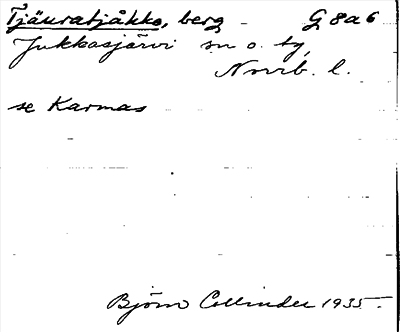 Tjäuratjåkko, berg G 8a6
Jukkasjärvi sn o. tg,
Norrb. l.
se Karmas
Björn Collinder 1935.